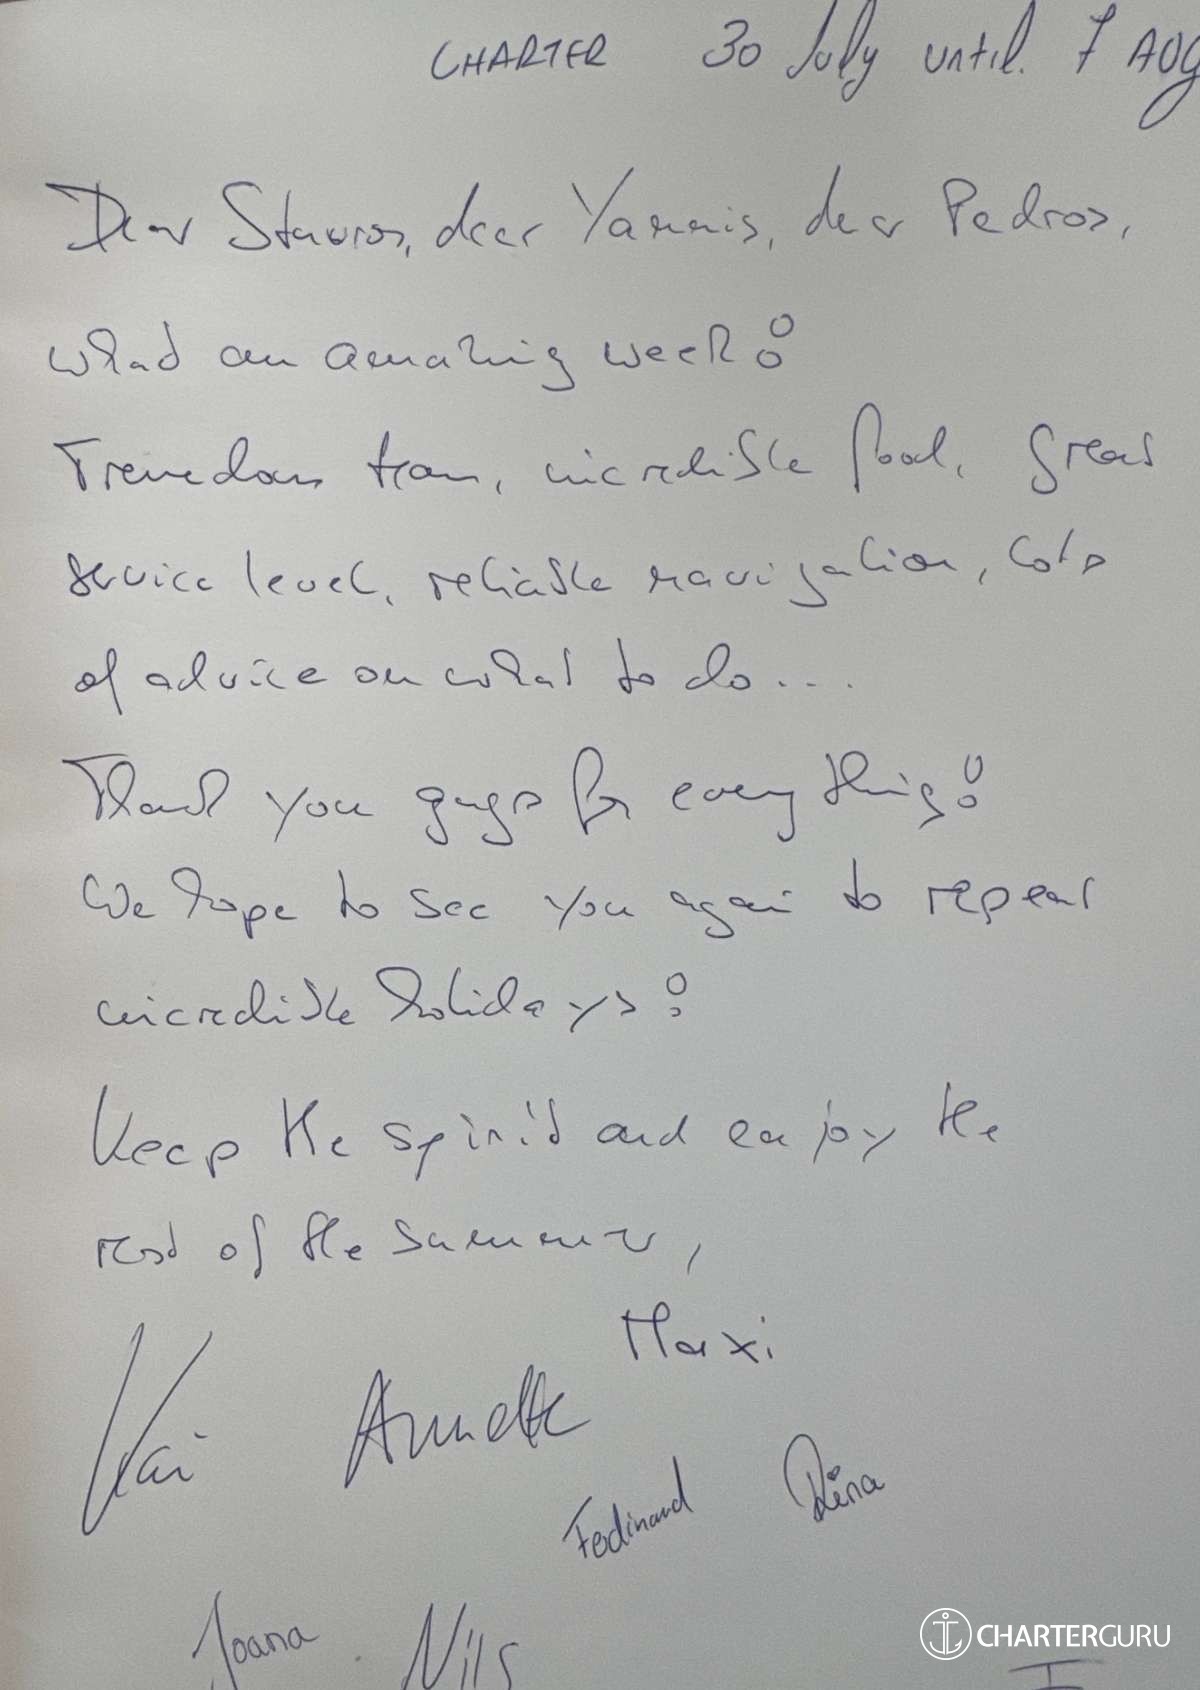 CHARTER 30 July until 7 AUG
Dear Stavros, dear Yannis, dear Pedros,
what an amazing week!
Tremendous team, incredible food, great
service level, reliable navigation, lots
of advice on what to do...
Thank you guys for everything!
We hope to see you again to repeat
incredible holidays!
Keep the spirit and enjoy the
rest of the summer,
Maxi
Kai Annette
Ferdinand Rina
Joana Nils
CHARTERGURU